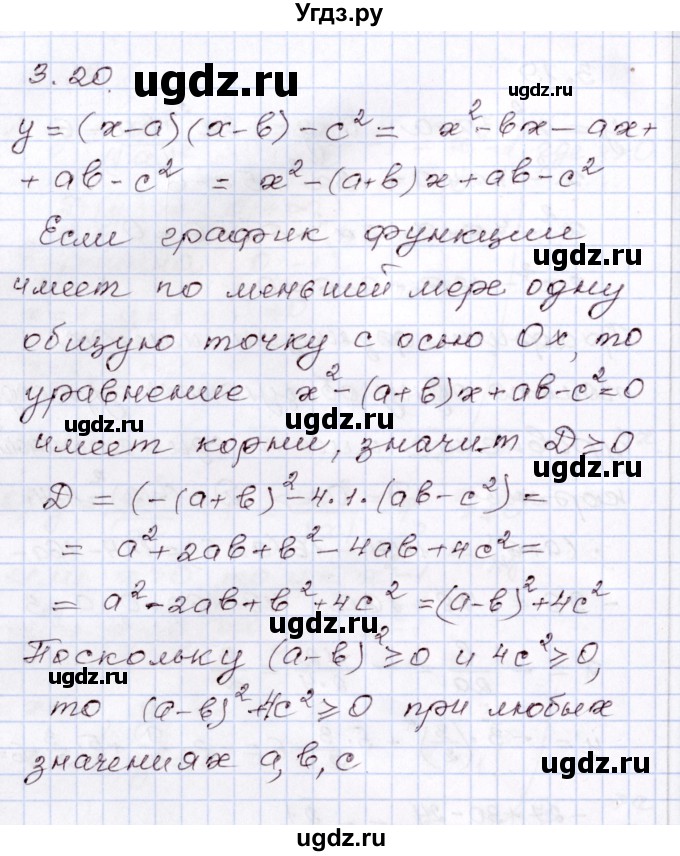 Угдз.ру
3.20. ugdz.ru
ugdz.ru
y = (x-a)(x-в)-c² = x²-вx-ax+
+ aв-c² = x²-(a+в)x+aв-c²
ugdz.ru
Если график функции
ugdz.ru
имеет по меньшей мере одну
общую точку с осью Ox, то
уравнение x²-(a+в)x+aв-c²=0
ugdz.ru ugdz.ru
имеет корни, значит D≥0
ugdz.ru
D = (-(a+в)²-4·1·(aв-c²) =
= a²+2aв+в²-4aв+4c²=
= a²-2aв+в²+4c² =(a-в)²+4c²
ugdz.ru
Поскольку (a-в)²≥0 и 4c²≥0,
ugdz.ru
то (a-в)²+4c²≥0 при любых
ugdz.ru
значениях a,в,c
ugdz.ru
ugdz.ru